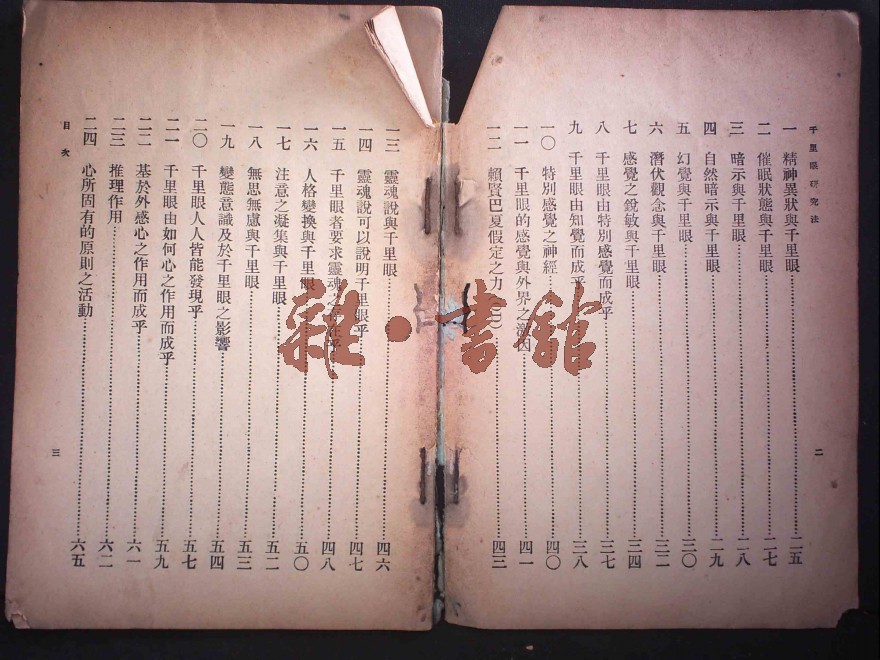 千里眼研究法
二
一 精神異狀與千里眼……二五
二 催眠狀態與千里眼……二七
三 暗示與千里眼……二八
四 自然暗示與千里眼……二九
五 幻覺與千里眼……三〇
六 潛伏觀念與千里眼……三二
七 感覺之銳敏與千里眼……三四
八 千里眼由特別感覺而成乎……三七
九 千里眼由知覺而成乎……三八
一〇 特別感覺之神經……四〇
一一 千里眼的感覺與外界之激因……四一
一二 賴賢巴夏假定之力(OD)……四三
一三 靈魂說與千里眼……四六
一四 靈魂說可以說明千里眼乎……四七
一五 千里眼者要求靈魂之 乎……四八
一六 人格變換與千里眼……五〇
一七 注意之凝集與千里眼……五二
一八 無思無慮與千里眼……五三
一九 變態意識及於千里眼之影響……五四
二〇 千里眼人人皆能發現乎……五七
二一 千里眼由如何心之作用而成乎……五九
二二 基於外感心之作用而成乎……六一
二三 推理作用……六二
二四 心所固有的原則之活動……六五
目次
三
雜·書館